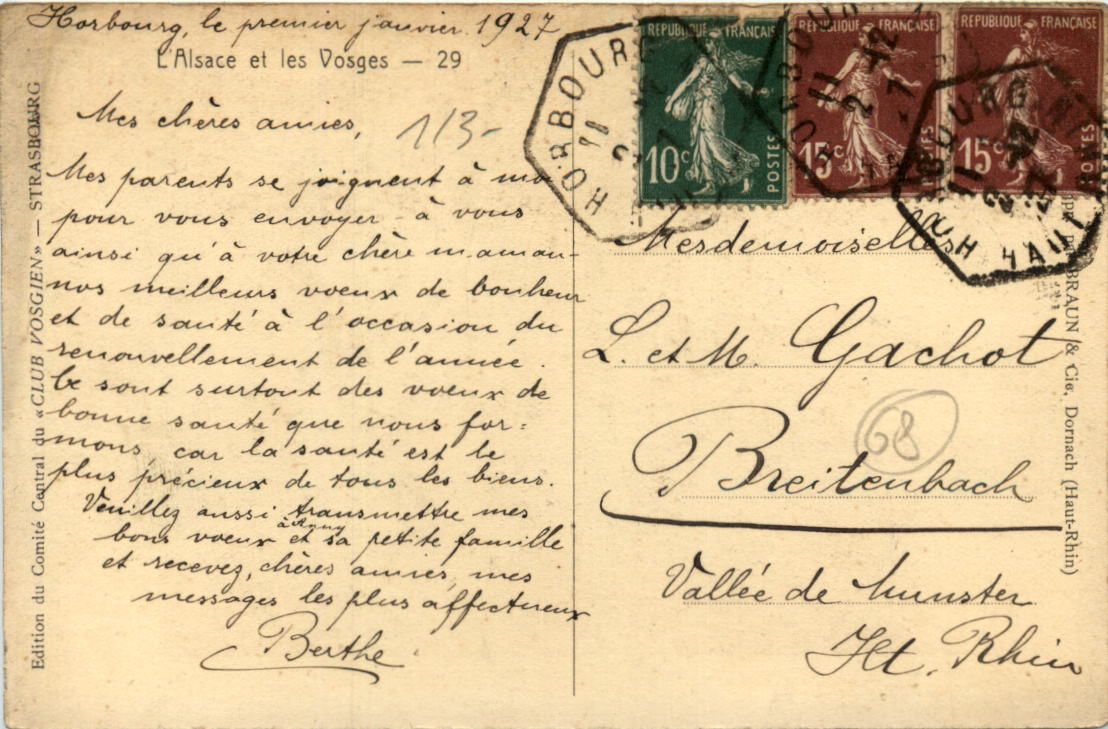 Horbourg, le premier janvier 1927
L'Alsace et les Vosges — 29
Mes chères amies,
113-
Mes parents se joignent à moi
pour vous envoyer à vous
ainsi qu'à votre chère maman
nos meilleurs voeux de bonheur
et de santé à l'occasion du
renouvellement de l'année.
Ce sont surtout des voeux de
bonne santé que nous for=
mons car la santé est le
plus précieux de tous les biens.
Veuillez aussi transmettre mes
bons voeux à Anny et sa petite famille
et recevez, chères amies, mes
messages les plus affectueux
Berthe
Edition du Comité Central du «CLUB VOSGIEN» — STRASBOURG
REPUBLIQUE FRANÇAISE
10c
POSTES
REPUBLIQUE FRANÇAISE
15c
POSTES
REPUBLIQUE FRANÇAISE
15c
POSTES
HORBOURG
11
HORBOURG
11 12
2 -1
HORBOURG
11 12
HAUT RHIN
Mesdemoiselles
L. et M. Gachot
68
Breitenbach
Vallée de Munster
Ht. Rhin
BRAUN & Cie, Dornach (Haut-Rhin)